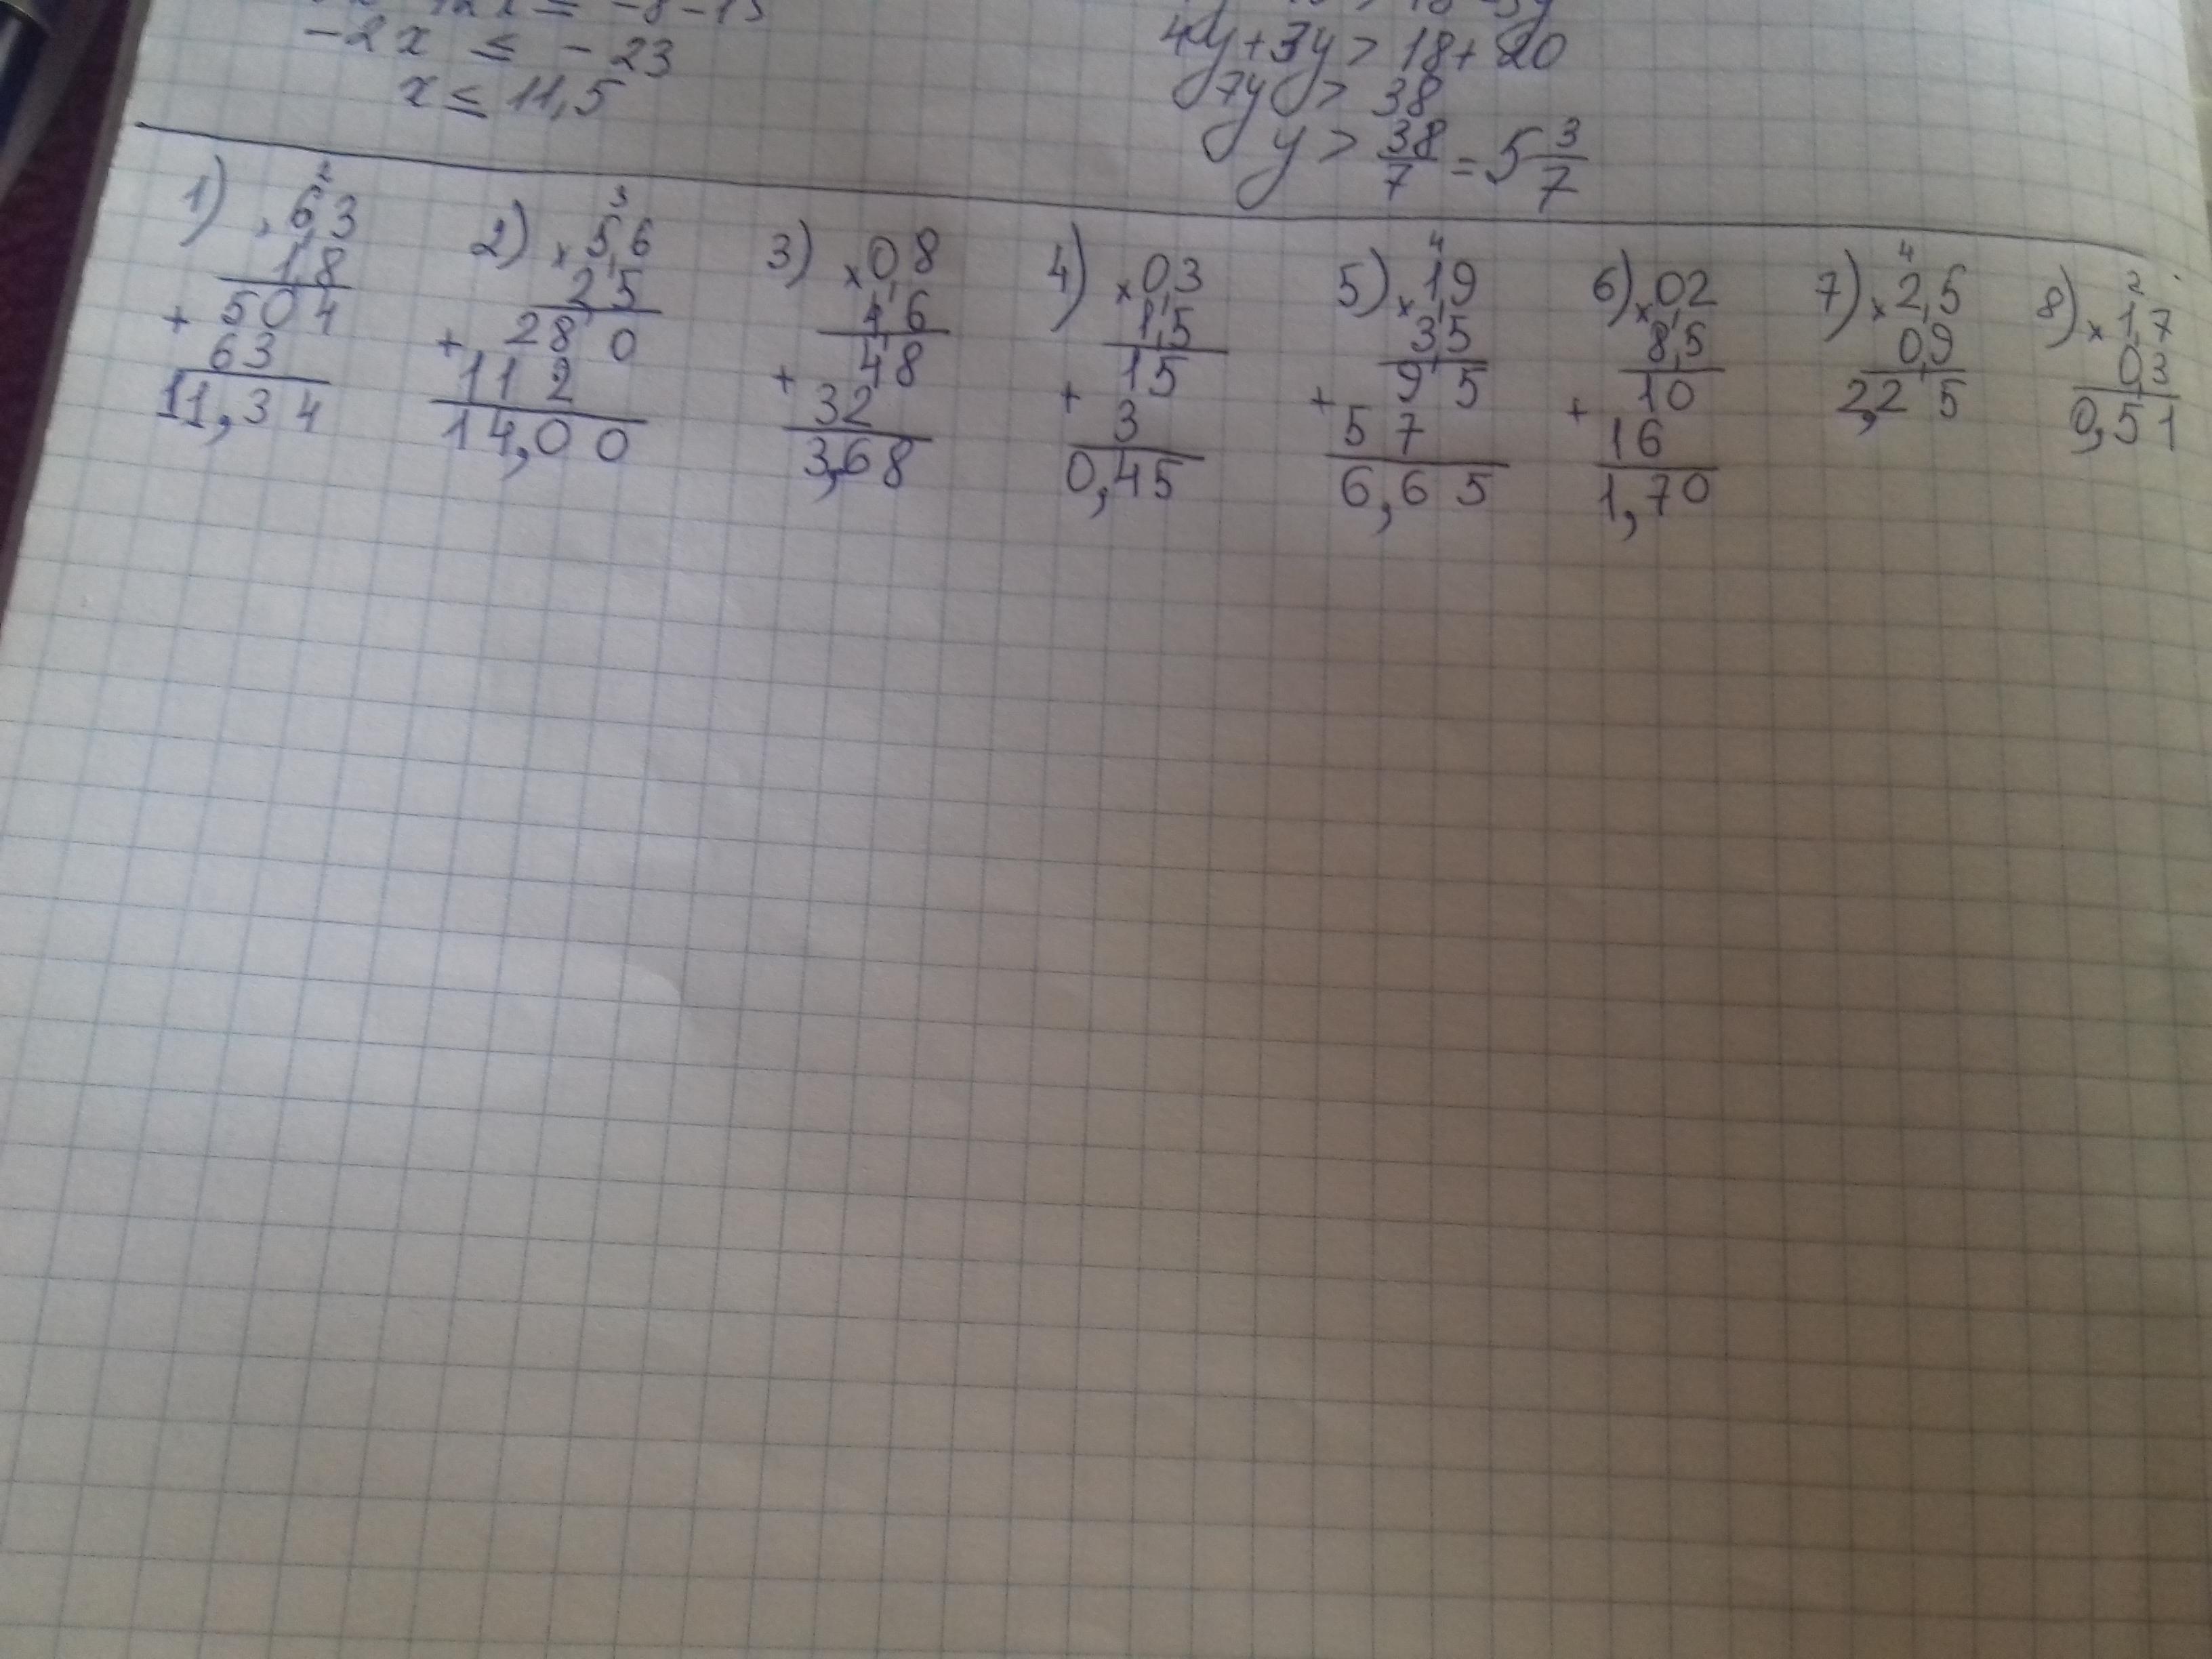 -2x ≤ -23
x ≤ 11,5
4y+3y > 18+20
7y > 38
y > 38/7 = 5 3/7
1)
2
× 6,3
1,8
+ 504
63
11,34
2)
3
× 5,6
2,5
+ 280
112
14,00
3)
× 0,8
4,6
+ 48
32
3,68
4)
× 0,3
1,5
+ 15
3
0,45
5)
4
× 1,9
3,5
+ 95
57
6,65
6)
× 0,2
8,5
+ 10
16
1,70
7)
4
× 2,5
0,9
2,25
8)
2
× 1,7
0,3
0,51